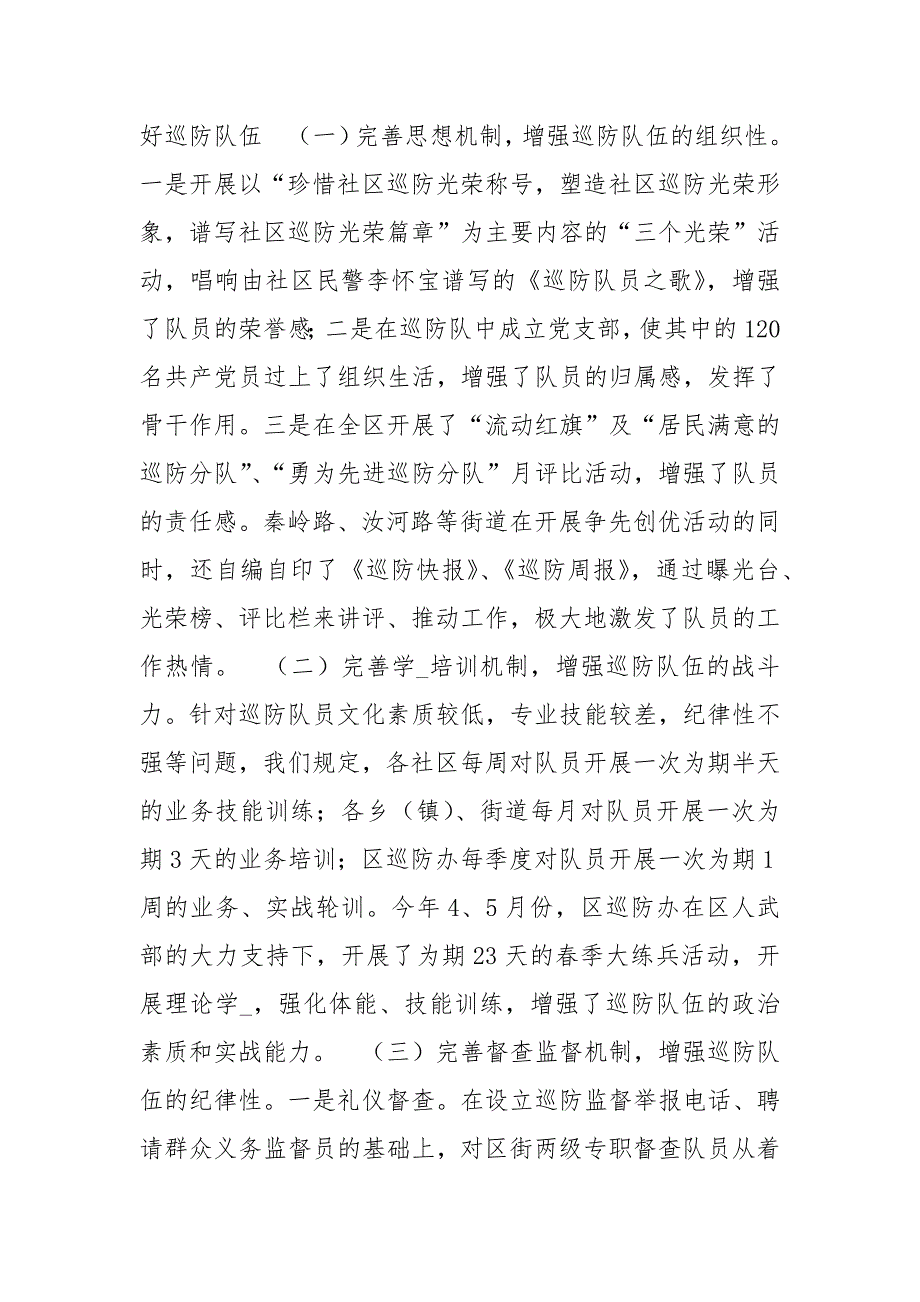 好巡防队伍　（一）完善思想机制，增强巡防队伍的组织性。
一是开展以“珍惜社区巡防光荣称号，塑造社区巡防光荣形
象，谱写社区巡防光荣篇章”为主要内容的“三个光荣”活
动，唱响由社区民警李怀宝谱写的《巡防队员之歌》，增强
了队员的荣誉感；二是在巡防队中成立党支部，使其中的 120
名共产党员过上了组织生活，增强了队员的归属感，发挥了
骨干作用。三是在全区开展了“流动红旗”及“居民满意的
巡防分队”、“勇为先进巡防分队”月评比活动，增强了队员
的责任感。秦岭路、汝河路等街道在开展争先创优活动的同
时，还自编自印了《巡防快报》、《巡防周报》，通过曝光台、
光荣榜、评比栏来讲评、推动工作，极大地激发了队员的工
作热情。　（二）完善学_培训机制，增强巡防队伍的战斗
力。针对巡防队员文化素质较低，专业技能较差，纪律性不
强等问题，我们规定，各社区每周对队员开展一次为期半天
的业务技能训练；各乡（镇）、街道每月对队员开展一次为
期 3 天的业务培训；区巡防办每季度对队员开展一次为期 1
周的业务、实战轮训。今年 4、5 月份，区巡防办在区人武
部的大力支持下，开展了为期 23 天的春季大练兵活动，开
展理论学_，强化体能、技能训练，增强了巡防队伍的政治
素质和实战能力。　（三）完善督查监督机制，增强巡防队
伍的纪律性。一是礼仪督查。在设立巡防监督举报电话、聘
请群众义务监督员的基础上，对区街两级专职督查队员从着